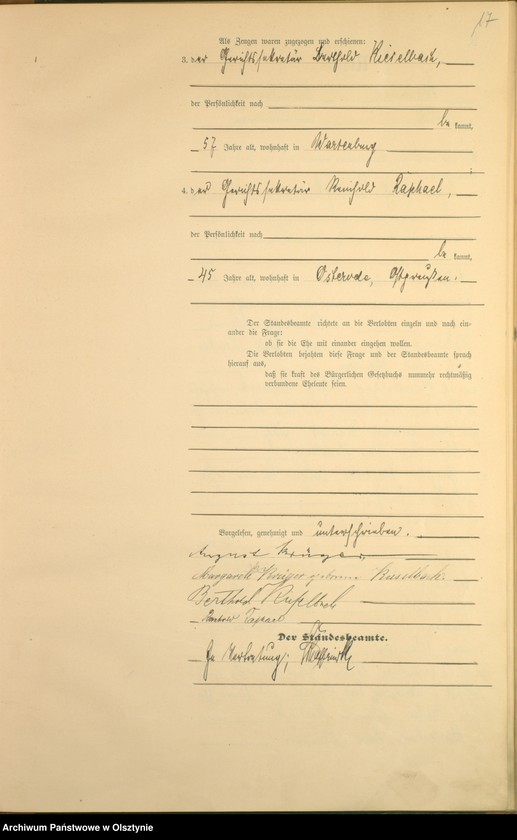 17
Als Zeugen waren zugezogen und erschienen:
3. der Gerichtssekretär Berthold Kieselbach,
der Persönlichkeit nach
be kannt,
57 Jahre alt, wohnhaft in Wartenburg
4. der Gerichtssekretär Reinhold Raphael,
der Persönlichkeit nach
be kannt,
45 Jahre alt, wohnhaft in Osterode, Ostpreußen.
Der Standesbeamte richtete an die Verlobten einzeln und nach ein-
ander die Frage:
ob sie die Ehe mit einander eingehen wollen.
Die Verlobten bejahten diese Frage und der Standesbeamte sprach
hierauf aus,
daß sie kraft des Bürgerlichen Gesetzbuchs nunmehr rechtmäßig
verbundene Eheleute seien.
Vorgelesen, genehmigt und unterschrieben.
August Krüger
Margarete Krüger geborene Kieselbach
Berthold Kieselbach
Raphael
Der Standesbeamte.
In Vertretung;
Archiwum Państwowe w Olsztynie